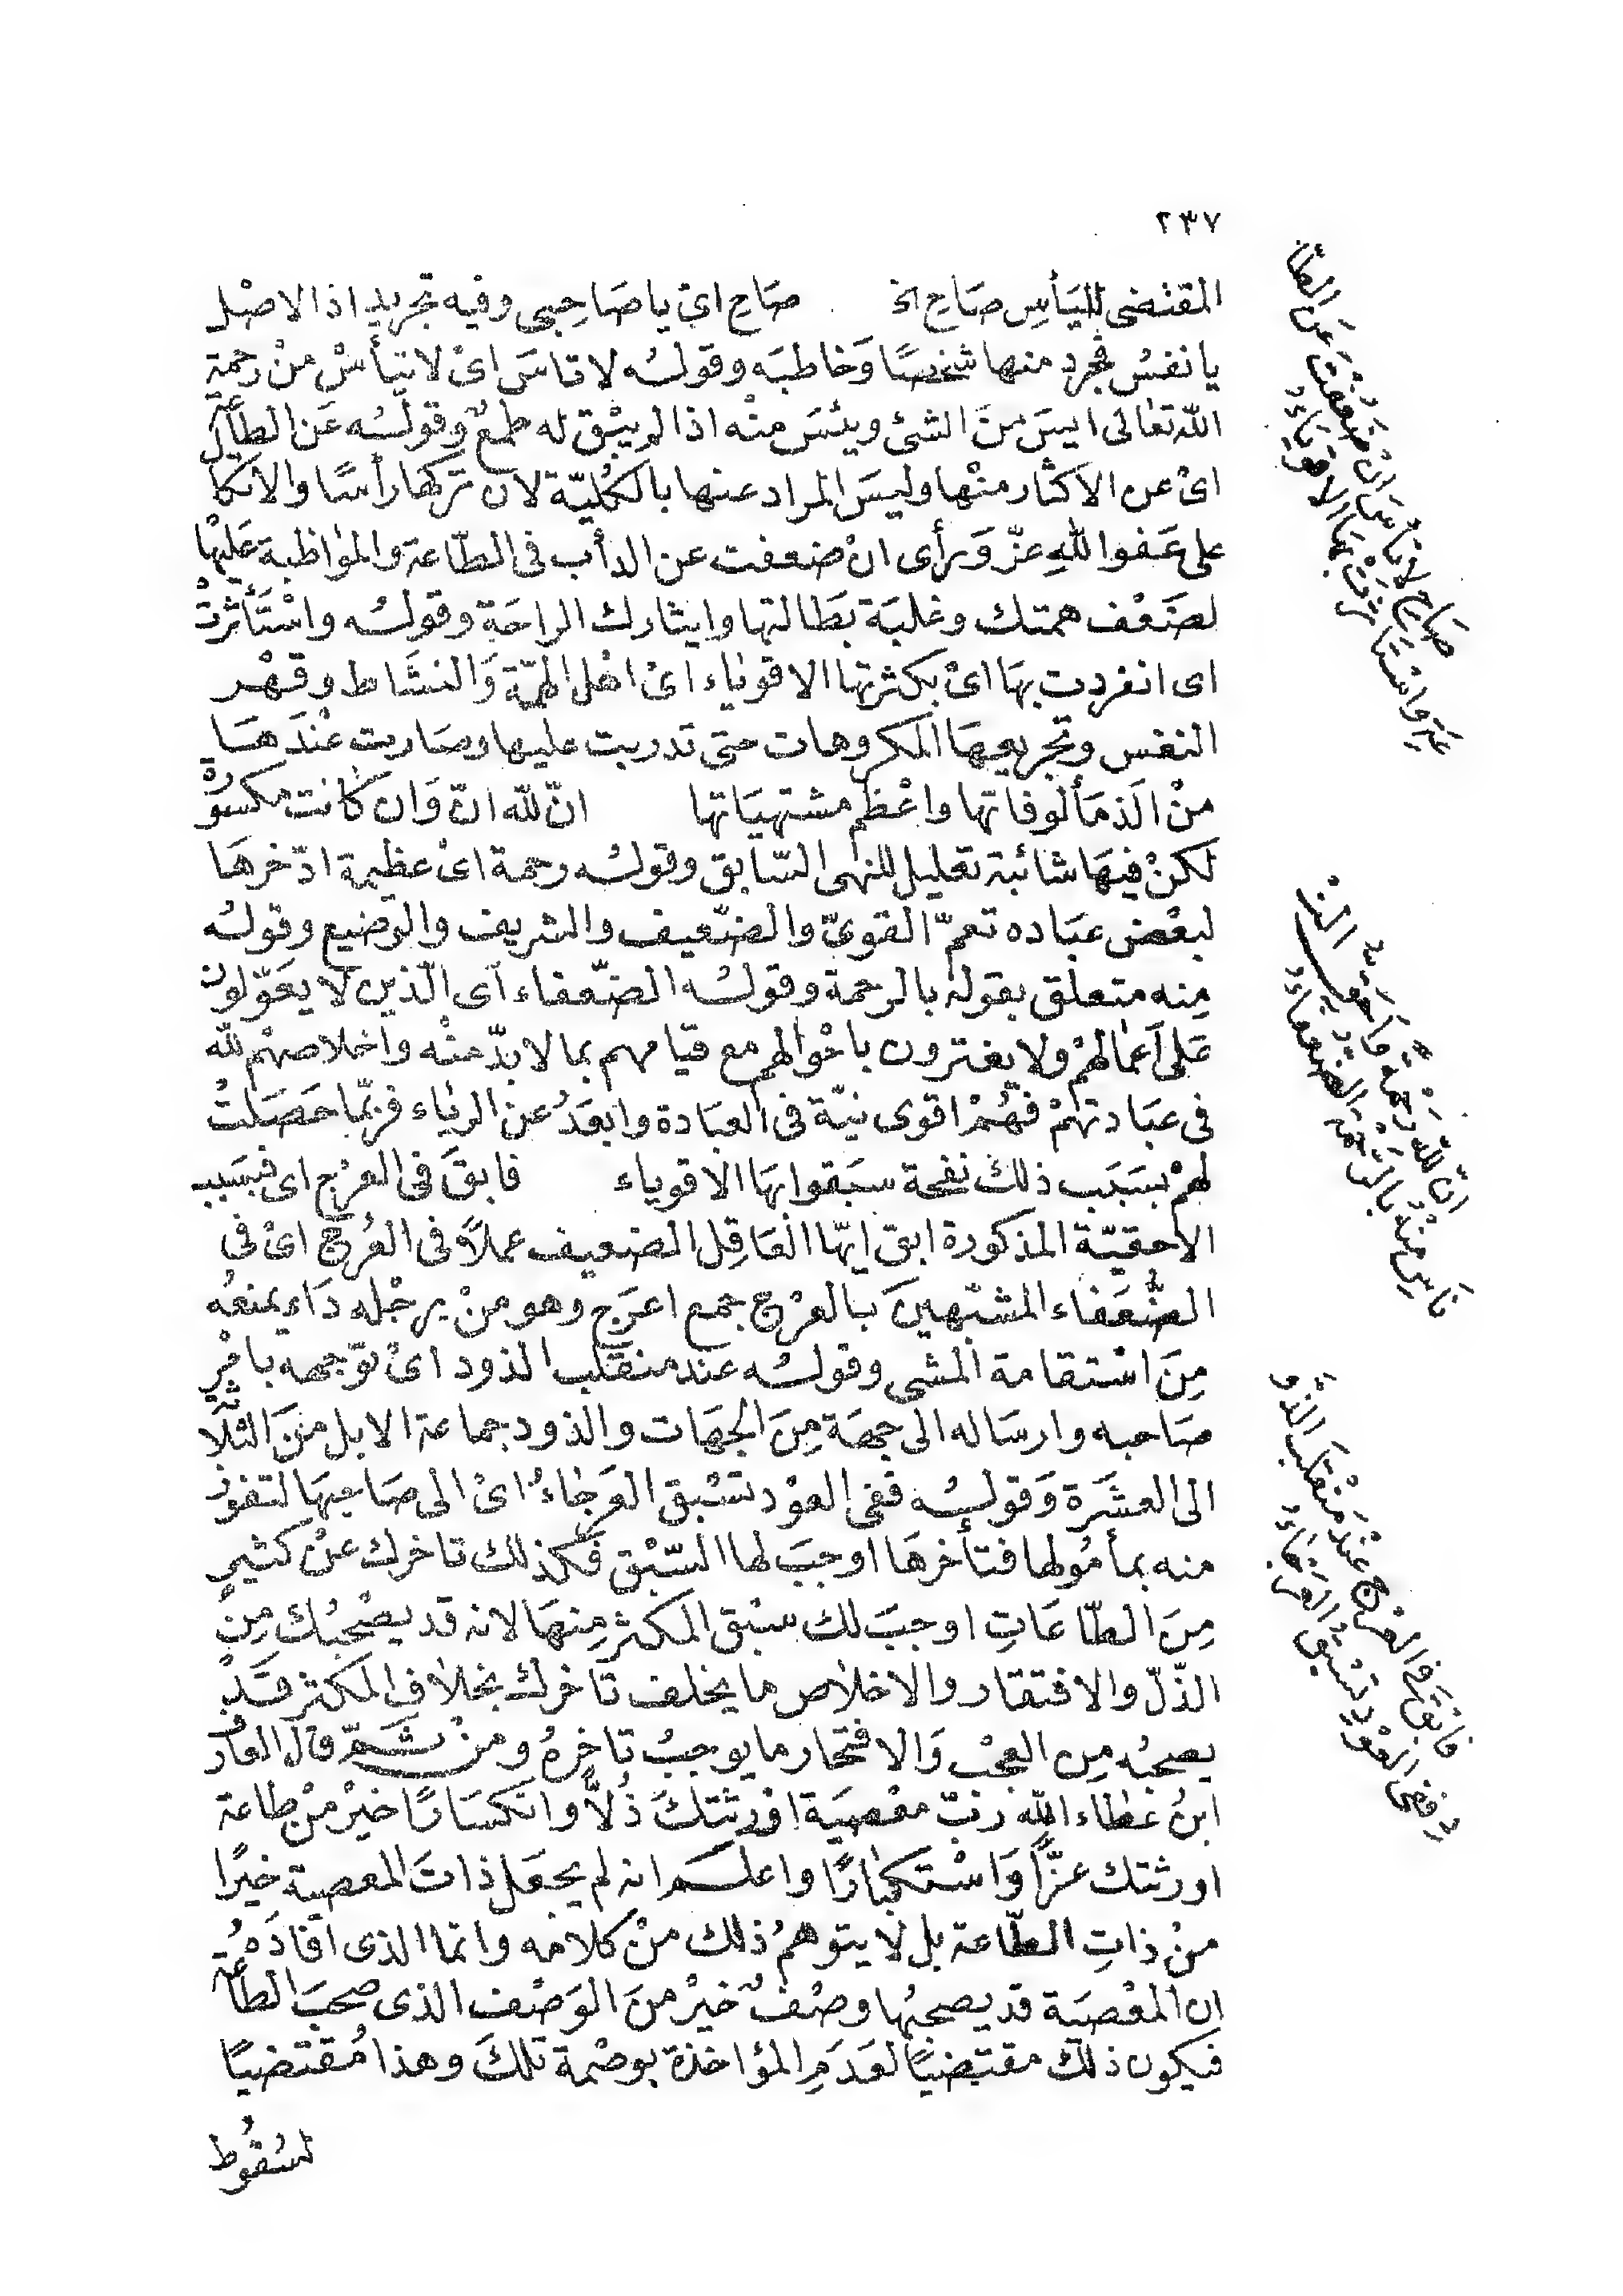 ٢٣٧
المقتضى لليأسِ صَاحِ الخ صَاحِ اىْ يا صَاحِبى وفيه تجريد اذ الاصْل
يا نفسُ فجرد منها شخصًا وَخاطبَه وقولـُه لا تاسَ اىْ لا تيأسْ منْ رحمةِ
اللّه تعالى ايسَ منَ الشئ ويئسَ منْه اذا لم يبْق له طمعٌ وقولـُه عَن الطاعَة
اىْ عن الاكثار منْها وليسَ المراد عنها بالكُليّة لان تركها رأسًا والاتكا
على عَفوا للهِ عزّ وَ رأى انْ ضعفت عن الدأب فى الطّاعة والمواظبة عَليْها
لضَعْف همتك وغلبَة بطَالتها وايثارك الراحَة وقولـُه واسْتَأثرتْ
اى انفردت بهَا اىْ بكثرتها الاقوياء اىْ اهْل الهمّة وَالنشَاط وقهْر
النفس وتجريعهَا المكروهات حتى تدربت عليها وصَارت عنْدَهَا
منْ الَذ مَألوفاتها واعْظم مشتهيَاتها انّ للّه انّ وَان كانت مكسُورة
لكنْ فيهَا شائبة تعليل للنهى السّابق وقولـُه رحمة اىْ عظيمة ادّخرهَا
لبعْض عبَاده تعمّ القوىّ والضّعيف والشريف والوضيع وقولـُه
مِنه متعلق بقوله بالرحمة وقولـُه الضّعفاء اى الّذين لا يعَوّلون
عَلى اَعمالهمْ ولا يغترون باحْوالهم مع قيامهم بما لا بدّ منْه واخلاصهمْ للّه
فى عبَادتهمْ فهُمْ اقوى نيّة فى العبَادة وابعَدُ عن الرياء فربّما حَصَلتْ
لهمْ بسَبَب ذلكَ نفحة سبَقوا بهَا الاقوياء فابقَ فى العرْج اى فبسَبب
الاحقيّة المذكورة ابق ايّها العَاقِل الضعيف عملاً فى العُرْج اىْ فى
الضُّعَفاء المشبّهينَ بالعرْج جمع اعرَج وهو منْ برجْله دَاء يمنعُه
مِنَ اسْتقامة المشى وقولـُه عند منقلب الذود اىْ توّجهه بامْر
صَاحبه وارسَاله الى جهَة مِنَ الجهَات والذود جماعة الابل منَ الثلاثة
الى العشَرة وَقولـُه ففى العوْد تسْبق العَرجاءُ اىْ الى صَاحبهَا لتفوز
منه بمأمُولها فتأخرهَا اوجبَ لها السّبْق فكذلك تاخرك عنْ كثيرٍ
مِنَ الطّاعَاتِ اوجبَ لك سبْق المكثر مِنهَا لانه قد يصْحبُك مِن
الذّلّ والافتقار والاخلاص ما يخلف تاخرك بخلاف المكثر فقَدْ
يصحبُه مِن العجْب وَالافتخار ما يوجبُ تاخرهُ ومنْ ثَمّ قال العار
ابنُ عَطاء اللّه ربّ معْصيَة اوْرثتكَ ذُلاًّ وانكسَارًا خيْر منْ طاعة
اورثتك عزّاً وَاسْتكبَارًا واعلم انه لم يجعَل ذاتَ المعصية خيرًا
منْ ذاتِ الطّاعة بل لا يتوهمُ ذلك منْ كلامه وانما الذى افادَهُ
ان المعْصيَة قد يصحبُها وصْفٌ خيرْ منَ الوَصْف الذى صحبَ الطاعَة
فيكون ذلكَ مقتضيًا لعَدَمِ المؤاخذة بوصْمة تلكَ وهذا مُقتضيًا
لسُقوُط
صَاحِ لا تأسَ انْ ضَعُفْتَ عَن الطَا
عَةِ وَاسْتَأثرَتْ بهَا الاقويَاءُ
انّ للّهِ رَحْمَةً وَاَحَقّ النـ
نَاسِ منْهُ بالرّحمَةِ الضعفاءُ
فابْقَ فى العُرْج عنْدَ مُنْقلَب الذَّو
دِ ففى العَوْد تسْبقُ العَرْجَاءُ